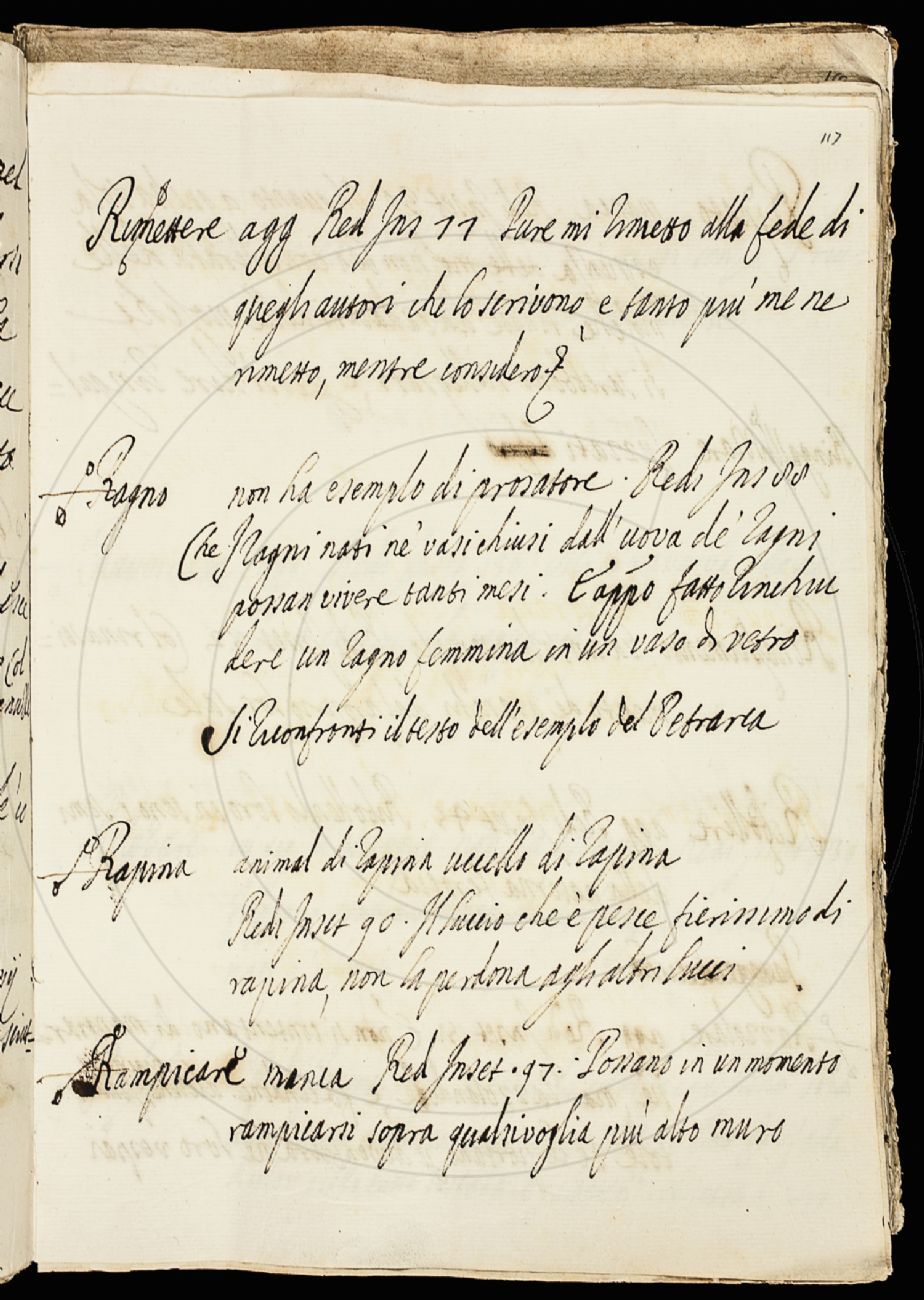 117
Rimettere agg Red Ins 77 Pure mi rimetto alla fede di
quegli autori che lo scrivono e tanto piú me ne
rimetto, mentre considero
Ragno non ha esemplo di prosatore. Redi Ins 88
Che I ragni nati ne' vasi chiusi dall' uova de' ragni
possan vivere tanti mesi. E appo fatto rinchiu
dere un ragno femmina in un vaso di vetro
Si riconfronti il testo dell'esemplo del Petrarca
Rapina animal di rapina uccello di rapina
Redi Inset 90. Il luccio che è pesce fierissimo di
rapina, non la perdona agli altri lucci
Rampicare manca Red Inset. 97. Possano in un momento
rampicarsi sopra qualsivoglia piú alto muro